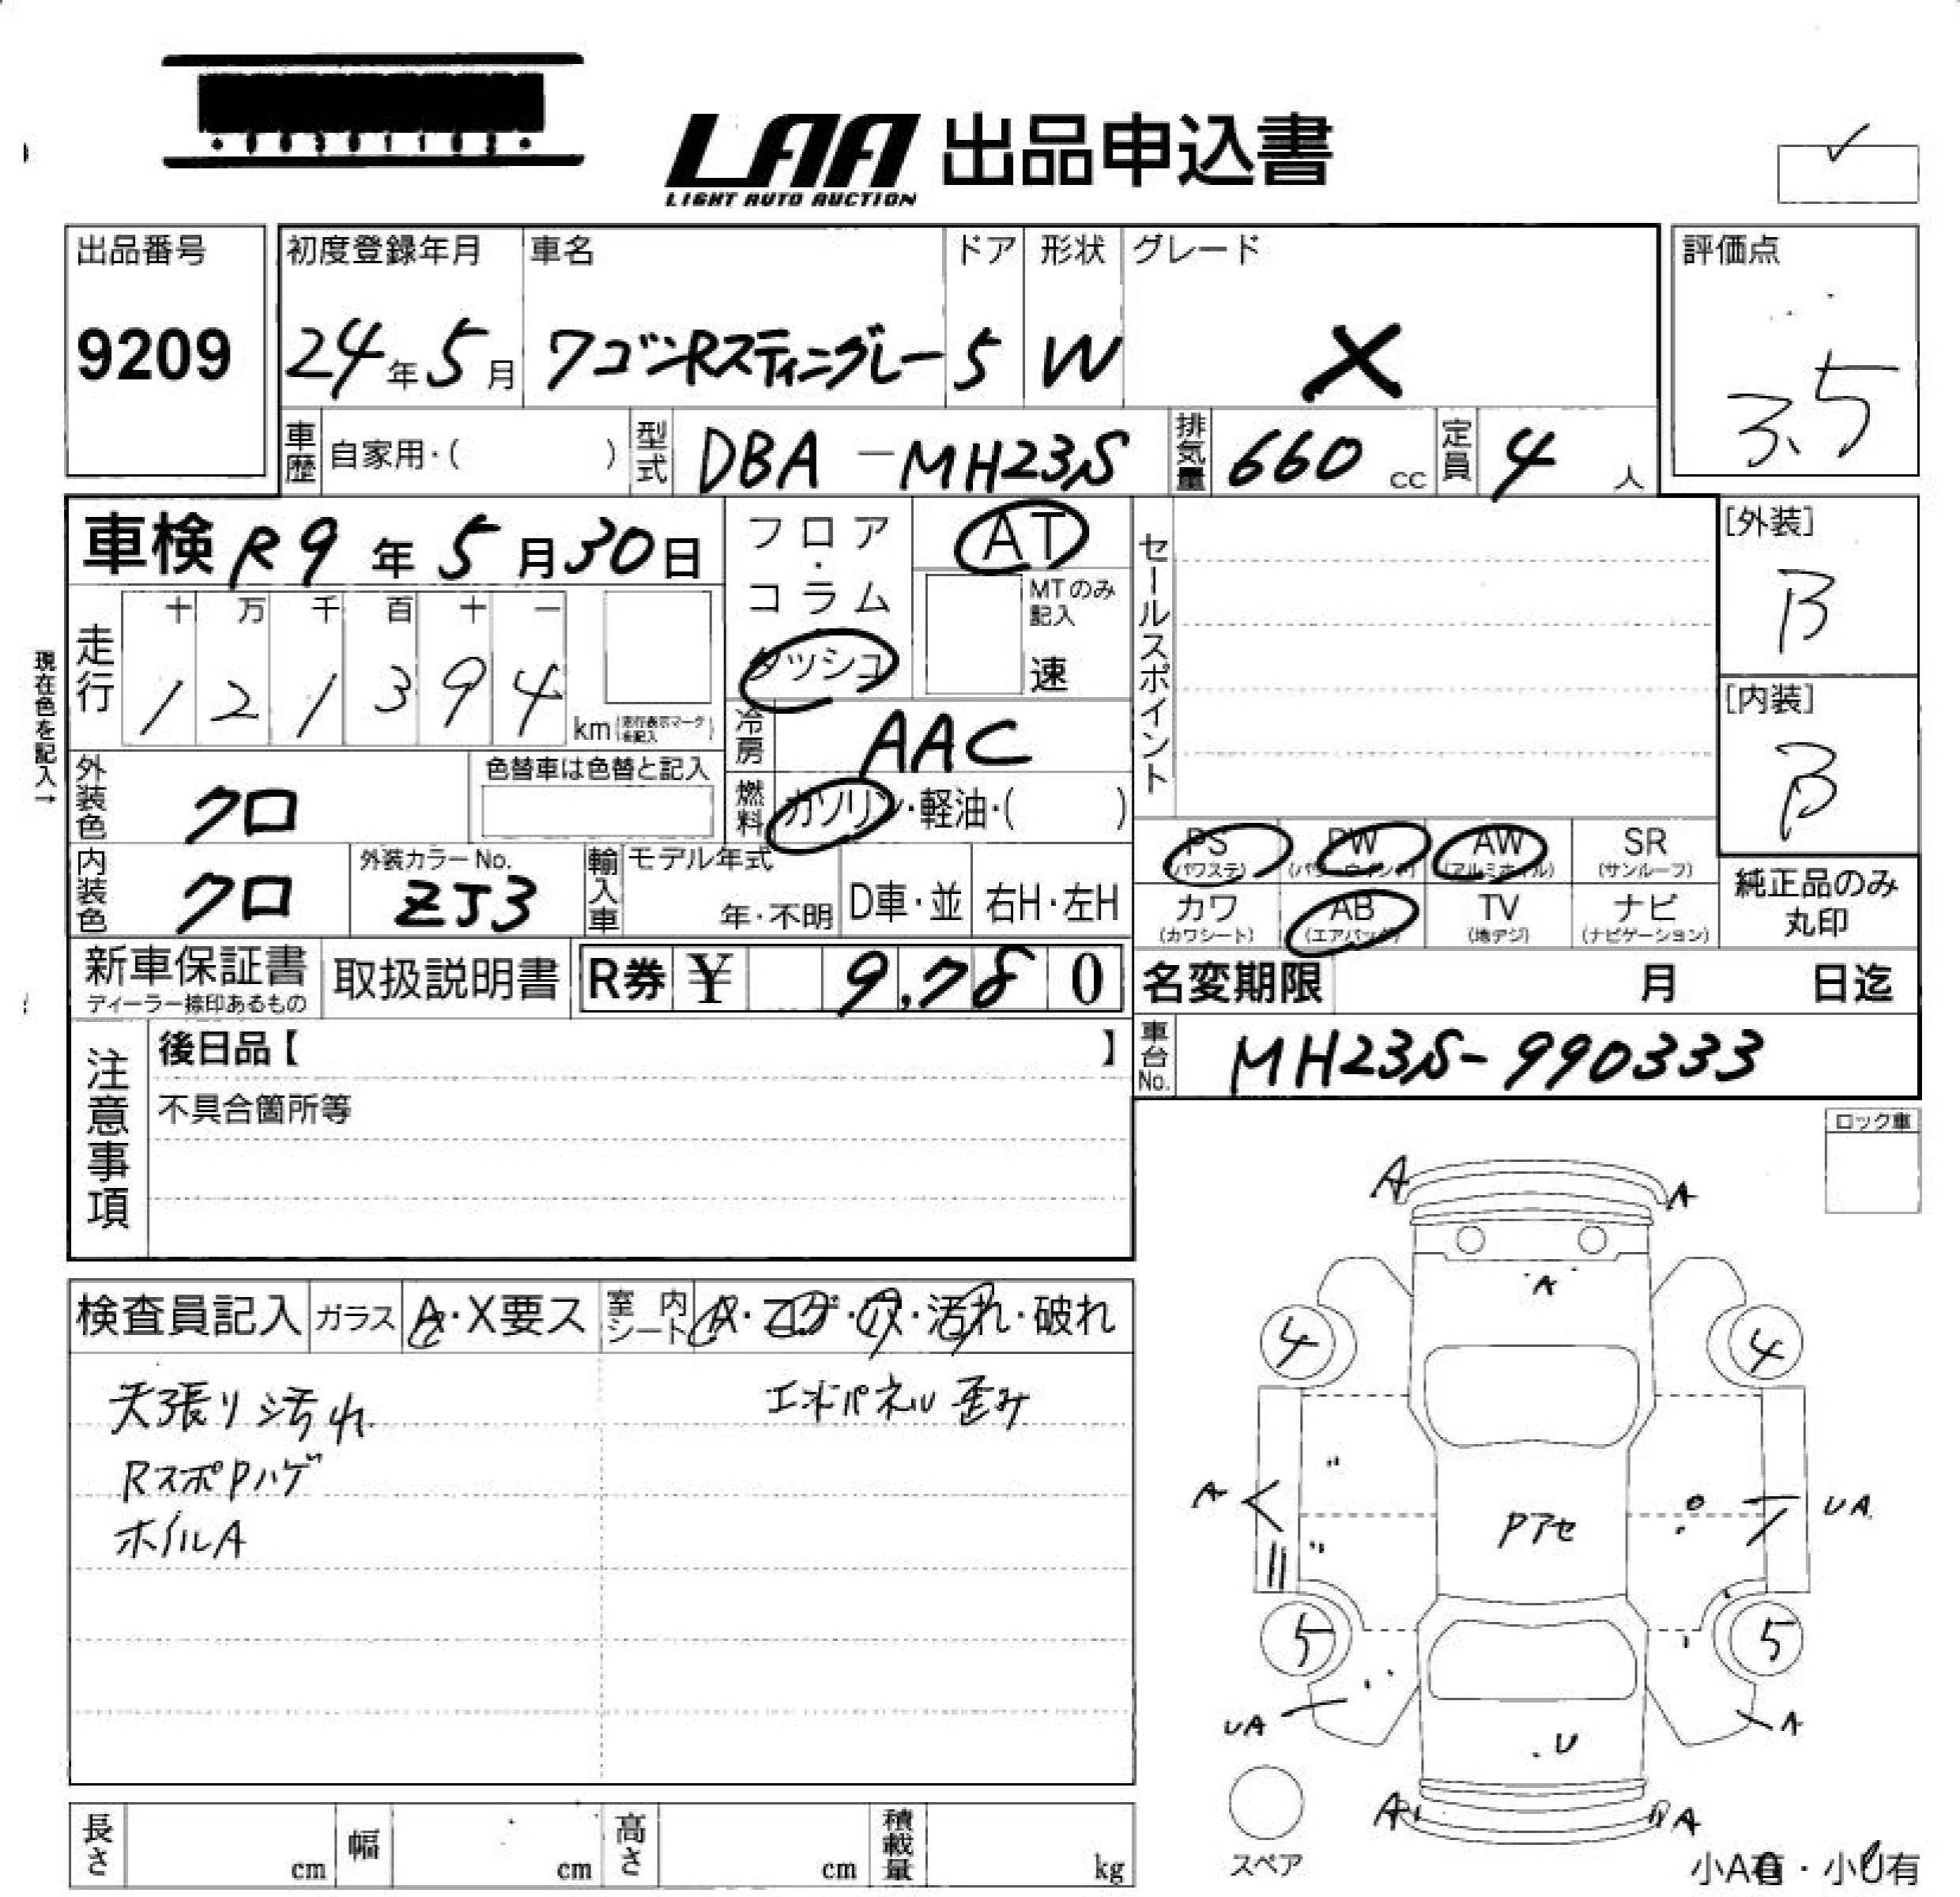 LAA 出品申込書
LIGHT AUTO AUCTION
出品番号 初度登録年月 車名 ドア 形状 グレード 評価点
9209 24年5月 ワゴンRスティングレー 5 W X 3.5
車歴 自家用・( ) 型式 DBA-MH23S 排気量 660 cc 定員 4 人
車検 R9年5月30日 フロア・コラム ダッシュ AT セールスポイント [外装]
B
MTのみ記入
速
走行 十 万 千 百 十 一
1 2 1 3 9 4 km (走行表示マークを記入)
現在色を記入→
[内装]
B
冷房 AAC
外装色 クロ 色替車は色替と記入 燃料 ガソリン・軽油・( )
PS (パワステ) PW (パワーウインドウ) AW (アルミホイル) SR (サンルーフ)
内装色 クロ 外装カラーNo. ZJ3 輸入車 モデル年式 年・不明 D車・並 右H・左H
カワ (カワシート) AB (エアバッグ) TV (地デジ) ナビ (ナビゲーション)
純正品のみ
丸印
新車保証書 取扱説明書 R券 ¥ 9,780 名変期限 月 日迄
ディーラー捺印あるもの
注意事項 後日品【 】 車台No. MH23S-990333
不具合箇所等
ロック車
検査員記入 ガラス A・X要ス 室内シート A・コゲ・穴・汚れ・破れ
天張り汚れ エボパネル歪み
RスポPハゲ
ホイルA
A A
A
4 4
A UA
Pアセ
5 5
UA A
U
A A
スペア
長さ cm 幅 cm 高さ cm 積載量 kg
小A有・小U有